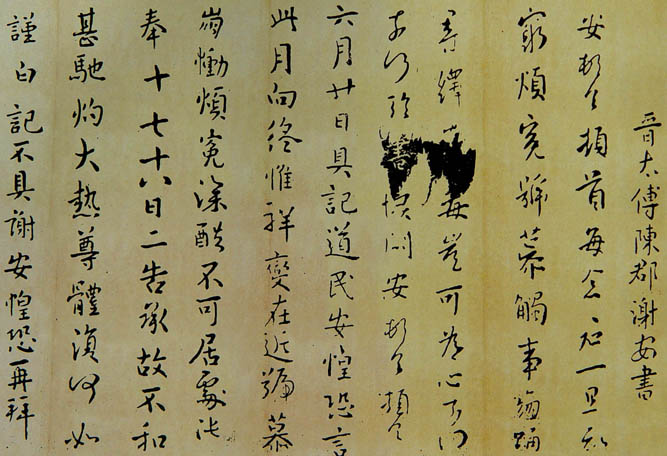 晋太傅陳郡謝安書
安頓首頓首每念君一旦知
窮煩冤號慕觸事崩踊
尋繹毒豈可為心奈何
奈何臨書悶安頓首頓首
六月廿日具記道民安惶恐言
此月向終惟祥變在近號慕
崩慟煩冤深酷不可居處比
奉十七十八日二告承故不和
甚馳灼大熱尊體復何如
謹白記不具謝安惶恐再拜